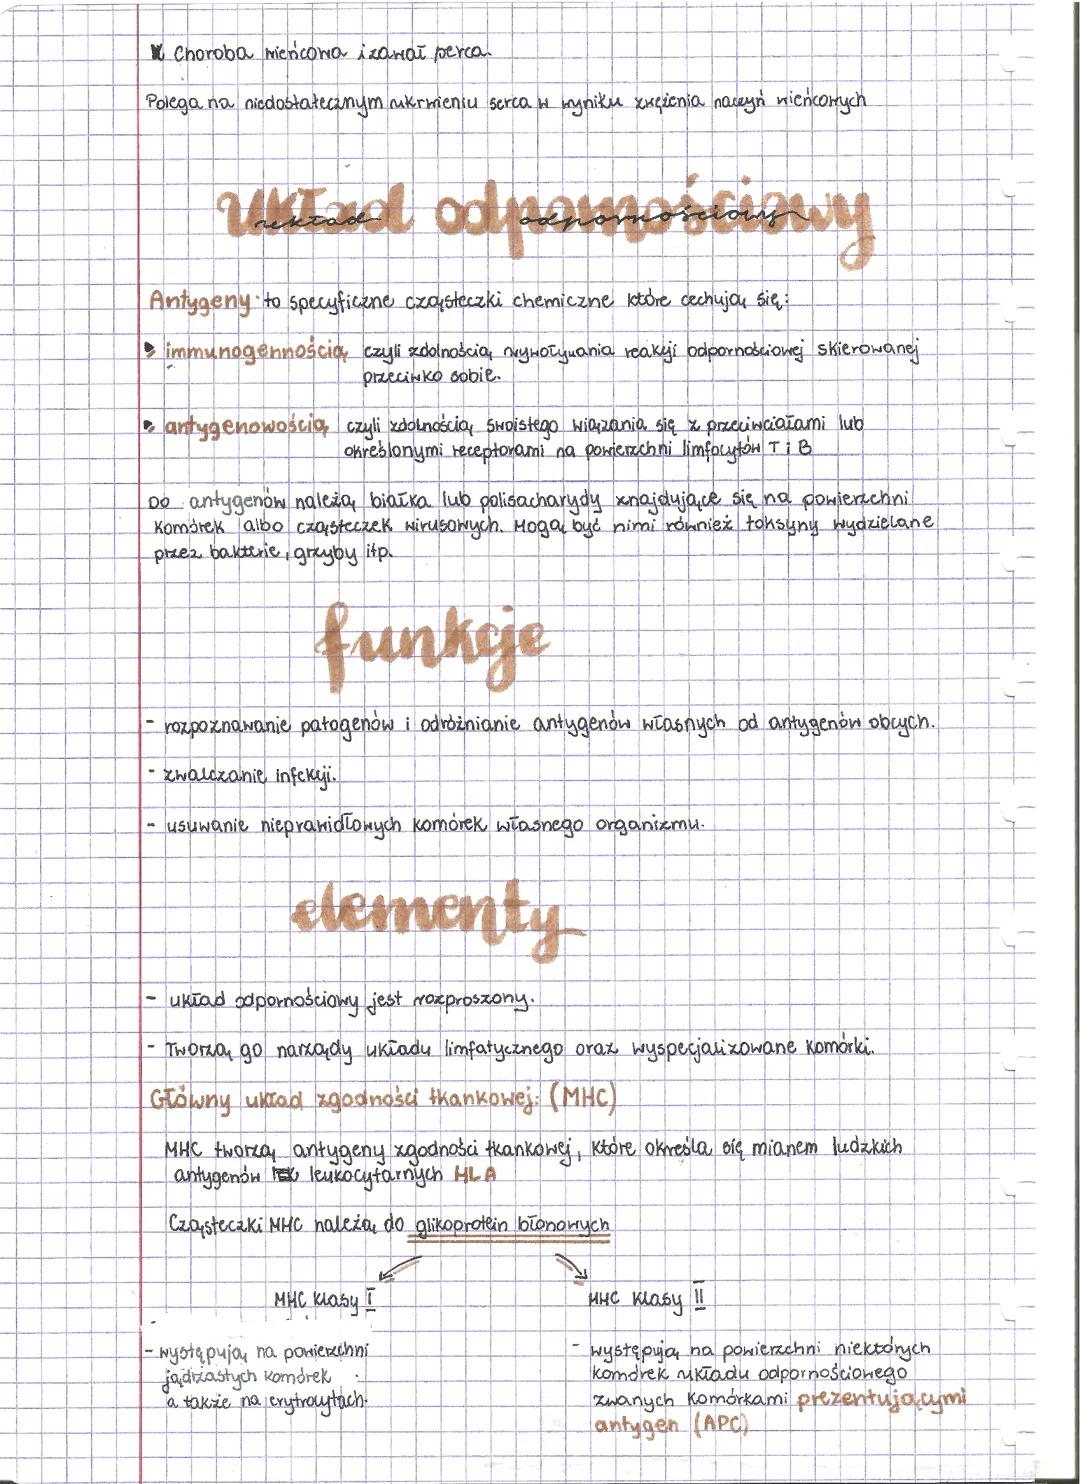 Choroba wieńcowa i zawał serca.
Polega na niedostatecznym ukrwieniu serca w wyniku zwężenia naczyń wieńcowych
Układ odpornościowy
układ odpornościowy
Antygeny to specyficzne cząsteczki chemiczne które cechują się:
immunogennością czyli zdolnością wywoływania reakcji odpornościowej skierowanej
przeciwko sobie.
antygenowością czyli zdolnością swoistego wiązania się z przeciwciałami lub
określonymi receptorami na powierzchni limfocytów T i B
Do antygenów należą białka lub polisacharydy znajdujące się na powierzchni
komórek albo cząsteczek wirusowych. Mogą być nimi również toksyny wydzielane
przez bakterie, grzyby itp.
funkcje
- rozpoznawanie patogenów i odróżnianie antygenów własnych od antygenów obcych.
- zwalczanie infekcji.
- usuwanie nieprawidłowych komórek własnego organizmu.
elementy
- układ odpornościowy jest rozproszony.
- Tworzą go narządy układu limfatycznego oraz wyspecjalizowane komórki.
Główny układ zgodności tkankowej: (MHC)
MHC tworzą antygeny zgodności tkankowej, które określa się mianem ludzkich
antygenów leukocytarnych HLA
Cząsteczki MHC należą do glikoprotein błonowych
MHC klasy I MHC klasy II
- występują na powierzchni
jądrzastych komórek
a także na erytrocytach.
- występują na powierzchni niektórych
komórek układu odpornościowego
zwanych komórkami prezentującymi
antygen (APC)